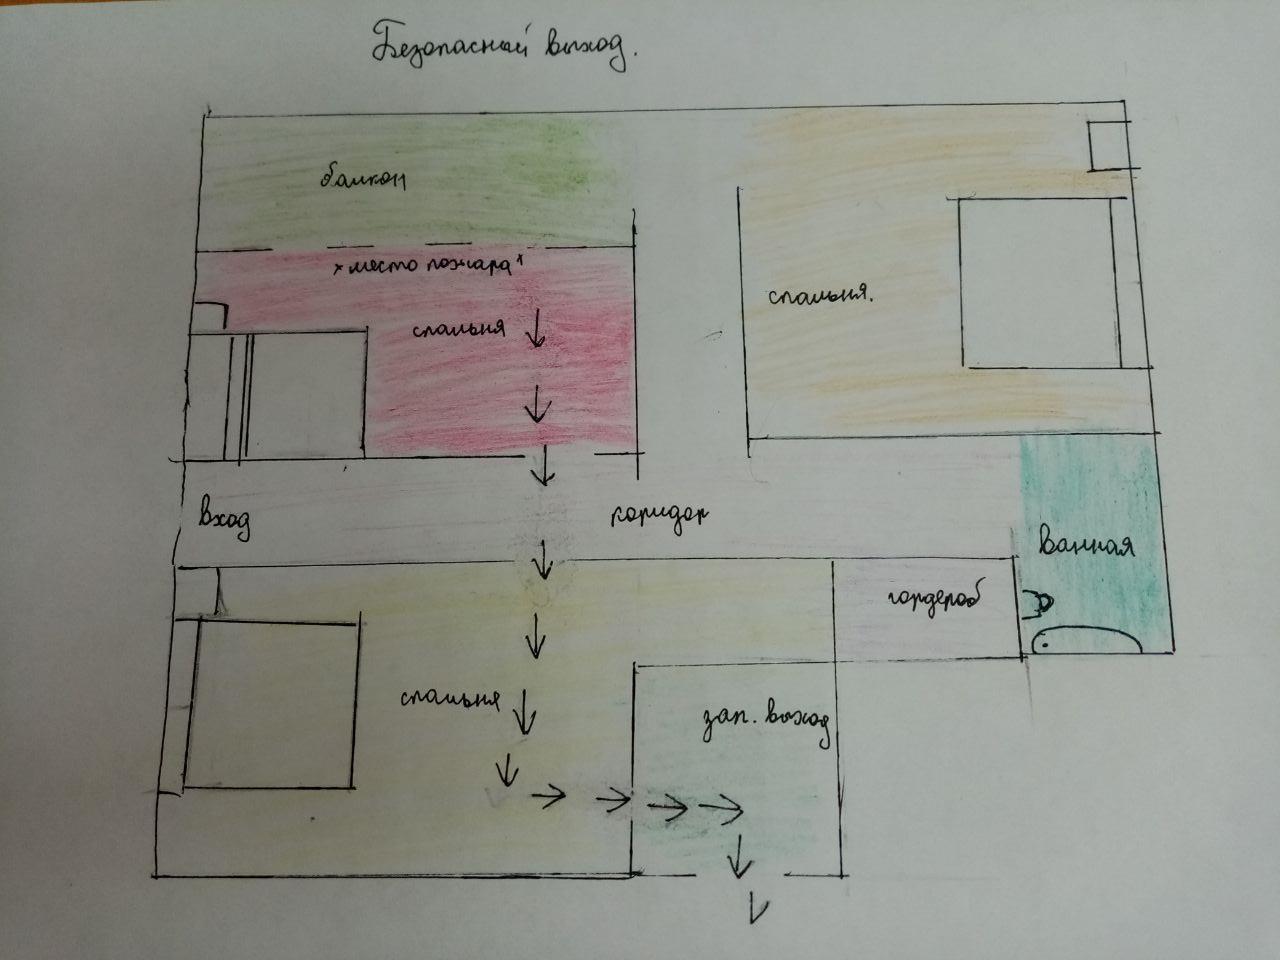 Безопасный выход.
балкон
"место пожара"
спальня
спальня.
вход
коридор
ванная
гордероб
спальня
зап. выход